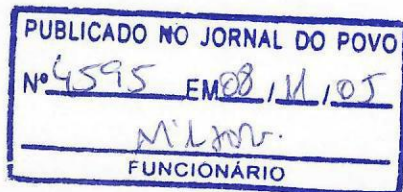 PUBLICADO NO JORNAL DO POVO
Nº 4595 EM 08 / 11 / 05
Nilson.
FUNCIONÁRIO